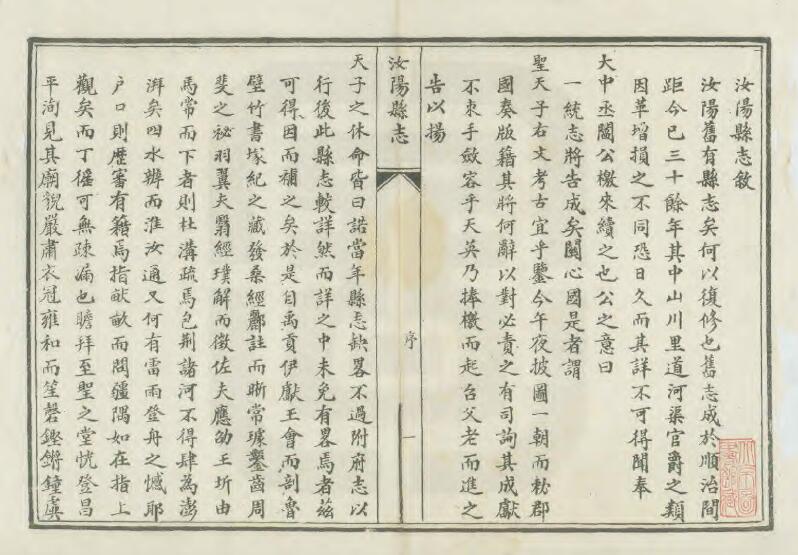 汝陽縣志敘
汝陽舊有縣志矣何以復修也舊志成於順治間
距今已三十餘年其中山川里道河渠官爵之類
因革增損之不同恐日久而其詳不可得聞奉
大中丞閻公檄來續之也公之意曰
一統志將告成矣關心國是者謂
聖天子右文考古宜乎鑒今午夜披圖一朝而粉郡
國奏版籍其將何辭以對必責之有司詢其成獻
不朿手斂容乎天英乃捧檄而起台父老而進之
告以揚
汝陽縣志
序
一
天子之休命皆曰諾當年縣志缺畧不過附府志以
行後此縣志較詳然而詳之中未免有畧焉者茲
可得因而補之矣於是自禹貢伊獻王會而剖魯
壁竹書塚紀之藏發桑經酈註而晰常璩鑿齒周
斐之祕羽翼夫翳經璞解而徵佐夫應劭王圻由
馬常而下者則杜溝疏焉色荆諸河不得肆為澎
湃矣四水辨而淮汝通又何有雷雨登舟之憾耶
户口則歷審有籍焉指畝畝而問疆隅如在指上
觀矣而丁徭可無疎漏也瞻拜至聖之堂恍登昌
平洵見其廟貌嚴肅衣冠雍和而笙磬鏗鏘鐘虡